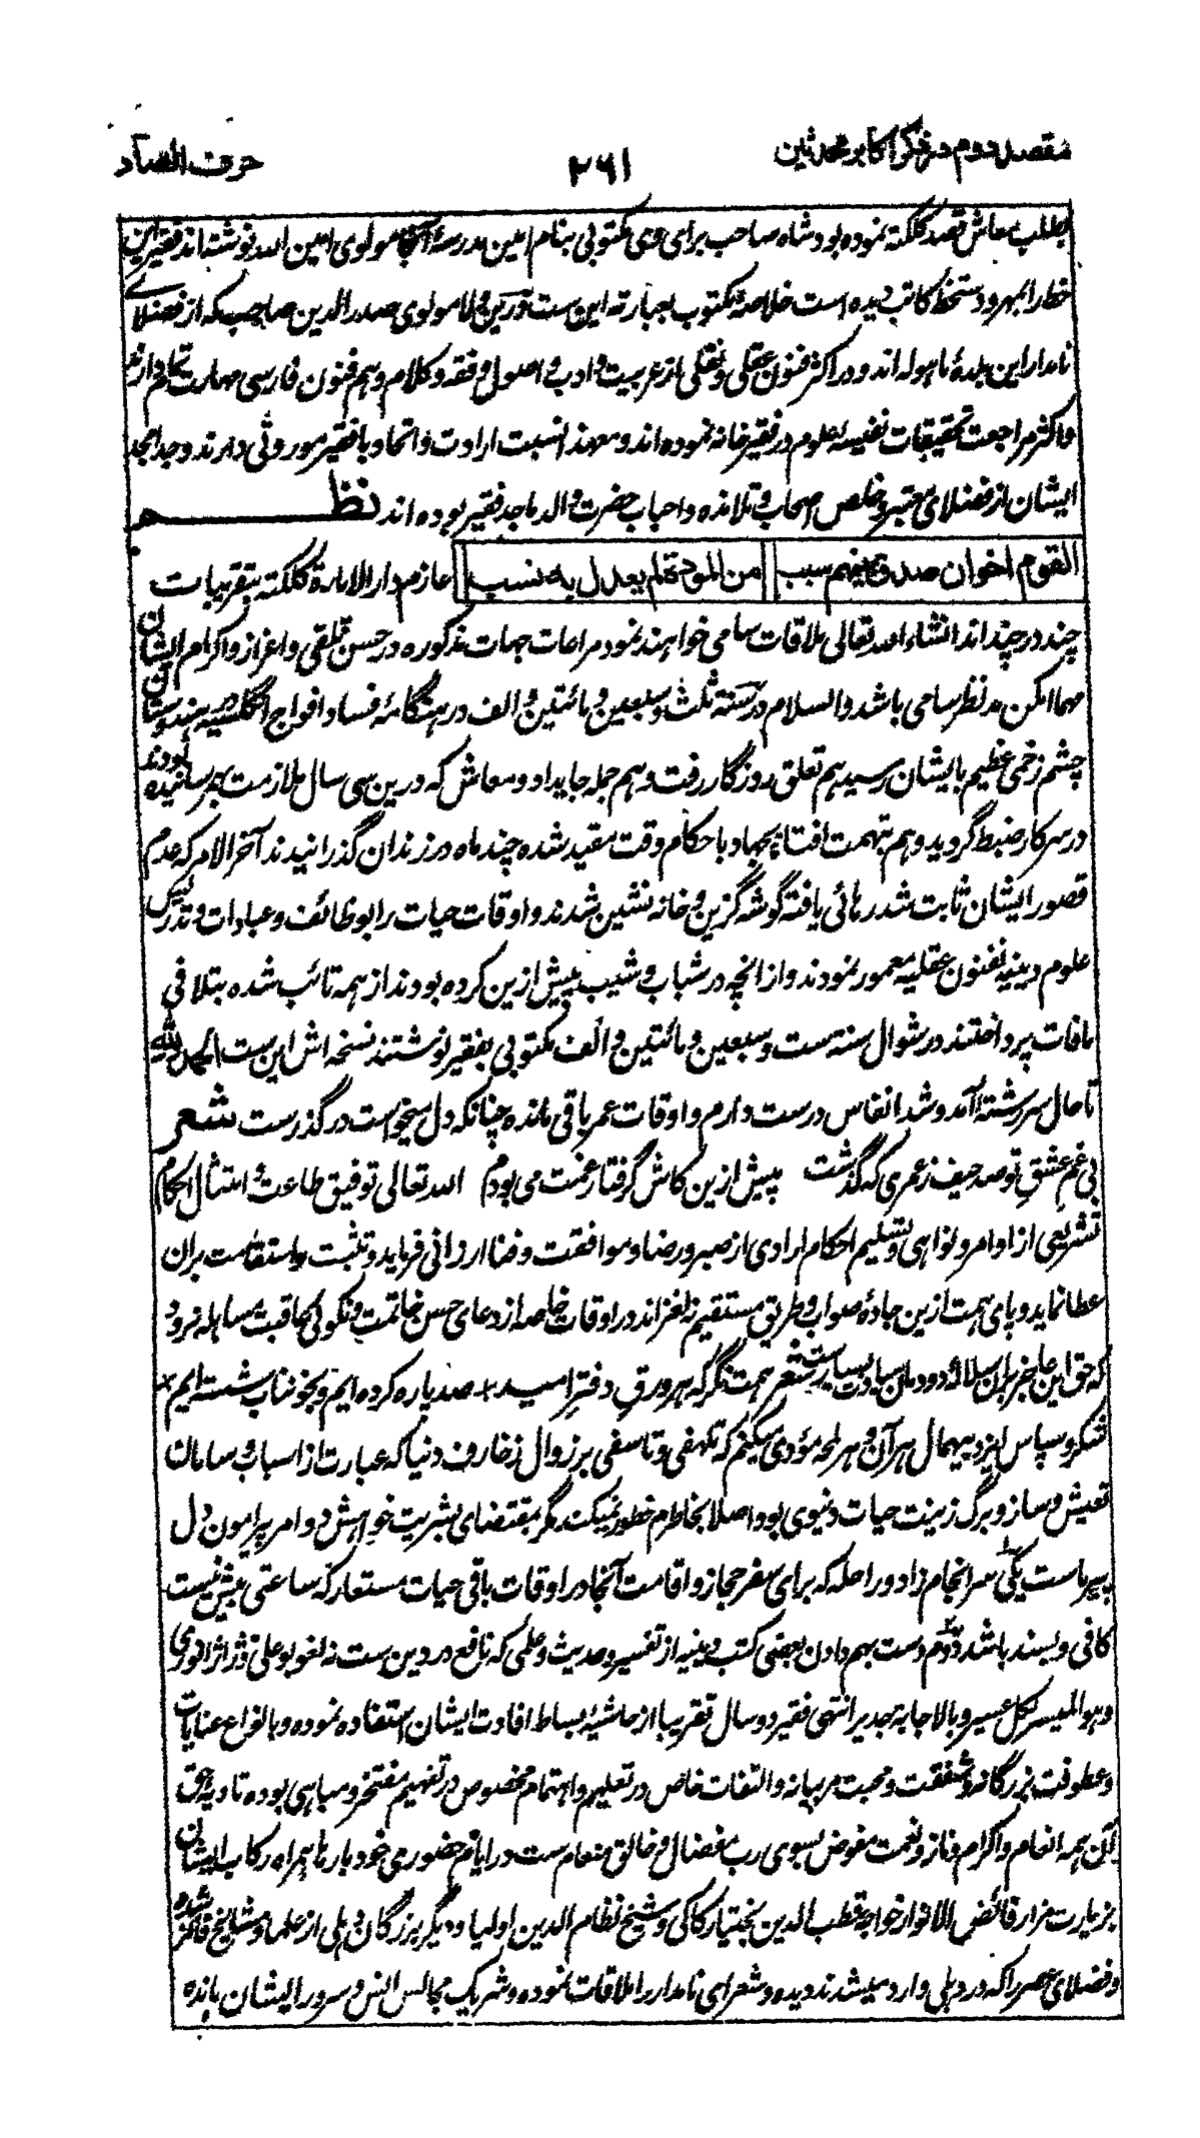 مقصد دوم در ذکر اکابر محدثین ۲۶۱ حرف الصاد
بطلب معاش قصد کلکته نموده بود شاه صاحب برای وی مکتوبی بنام امین مدرسهٔ آنجا مولوی امین الله نوشته اند فقیر این
خط را بمهر و دستخط کاتب دیده است خلاصهٔ مکتوب بعبارته این ست و درین ولا مولوی صدر الدین صاحب که از فضلای
نامدار این بلدهٔ ماهوله اند و در اکثر فنون عقلی و نقلی از عربیت و ادب و اصول و فقه و کلام و هم فنون فارسی مهارت تام دارند
و اکثر مراجعت تحقیقات نفیسه علوم در فقیر خانه نموده اند و معهذا نسبت ارادت و اتحاد با فقیر موروثی دارند و جد امجد
ایشان از فضلای معتبر و خلص اصحاب و تلامذه و احباب حضرت والد ماجد فقیر بوده اند نظم
القوم اخوان صدق بینهم سبب من المودة لم یعدل به نسب عازم دار الامارة کلکته بتقریبات
چند در چند اند انشاء الله تعالی ملاقات سامی خواهند نمود مراعات جهات مذکوره در حسن تلقی و اعزاز و اکرام ایشان
مهما امکن مد نظر سامی باشد والسلام در سنة ثلث و سبعین و مائتین و الف در هنگامهٔ فساد افواج انگلسیه در هندوستان
چشم زخمی عظیم بایشان رسید هم تعلق روزگار رفت و هم جمله جایداد و معاش که درین سی سال ملازمت بهم رسانیده بودند
در سرکار ضبط گردید و هم بتهمت افتا بجهاد با حکام وقت مقید شده چند ماه در زندان گذرانیدند آخر الامر که عدم
قصور ایشان ثابت شد رهائی یافته گوشه گزین و خانه نشین شدند و اوقات حیات را بوظائف و عبادات و تدریس
علوم دینیه نفنون عقلیه معمور نمودند و از انچه در شباب و شیب پیش ازین کرده بودند از همه تائب شده بتلافی
مافات پرداختند در شوال سنه ست و سبعین و مائتین و الف مکتوبی بفقیر نوشتند نسخه اش این ست الحمد لله
تا حال سررشتهٔ آمد و شد انفاس درست دارم و اوقات عمر باقی مانده چنانکه دل میخواست در گذرست شعر
بی غم عشق تو صد حیف ز عمری که گذشت پیش ازین کاش گرفتار غمت می بودم الله تعالی توفیق طاعت و امتثال احکام
تشریعی از اوامر و نواهی و تسلیم احکام ارادی از صبر و رضا و موافقت و فنا ارزانی فرماید و تثبت و استقامت بران
عطا نماید و پای همت ازین جادهٔ صواب و طریق مستقیم نلغزاند در اوقات خاصه از دعای حسن خاتمت و نکوئی عاقبت مساهله نرود
که حق این عاجز بران سلالهٔ دودمان سیادت بسیارست شعر همت نگر که بهر ورق دفتر امید × صد پاره کرده ایم و بخوناب شسته ایم ×
شکر و سپاس ایزد بیهمال هر آن و هر لمحه مؤدی میکنم که تلهفی و تاسفی بر زوال زخارف دنیا که عبارت از اسباب و سامان
تعیش و ساز و برگ زینت حیات دنیوی بود اصلا بخاطرم خطور نمیکند مگر بمقتضای بشریت خواهش دو امر پیرامون دل
پیر ماست یکی سرانجام زاد و راحله که برای سفر حجاز و اقامت آنجا در اوقات باقی حیات مستعار که ساعتی بیش نیست
کافی و بسند باشد دوم دست بهم دادن بعضی کتب دینیه از تفسیر و حدیث و علمی که نافع در دین ست نه لغو بوعلی و ژاژ انوری
و هو المیسر لکل عسیر و بالاجابة جدیر انتهی فقیر دو سال تقریبا از حاشیهٔ بساط افادت ایشان استفاده نموده و بانواع عنایات
و عطوفت بزرگانه و شفقت و محبت مربیانه و التفات خاص در تعلیم و اهتمام مخصوص در تفهیم مفتخر و مباهی بوده تادیهٔ حق
آن همه انعام و اکرام و ناز و نعمت مفوض بسوی رب مفضال و خالق منعام ست در ایام حضوری خود بارها همراه رکاب ایشان
بزیارت مزار فائض الانوار خواجه قطب الدین بختیار کاکی و شیخ نظام الدین اولیا و دیگر بزرگان دهلی از علما و مشایخ فائز شده
و فضلای عصر را که در دهلی وارد میشدند دیده و شعرای نامدار را ملاقات نموده و شریک مجالس انس و سرور ایشان مانده